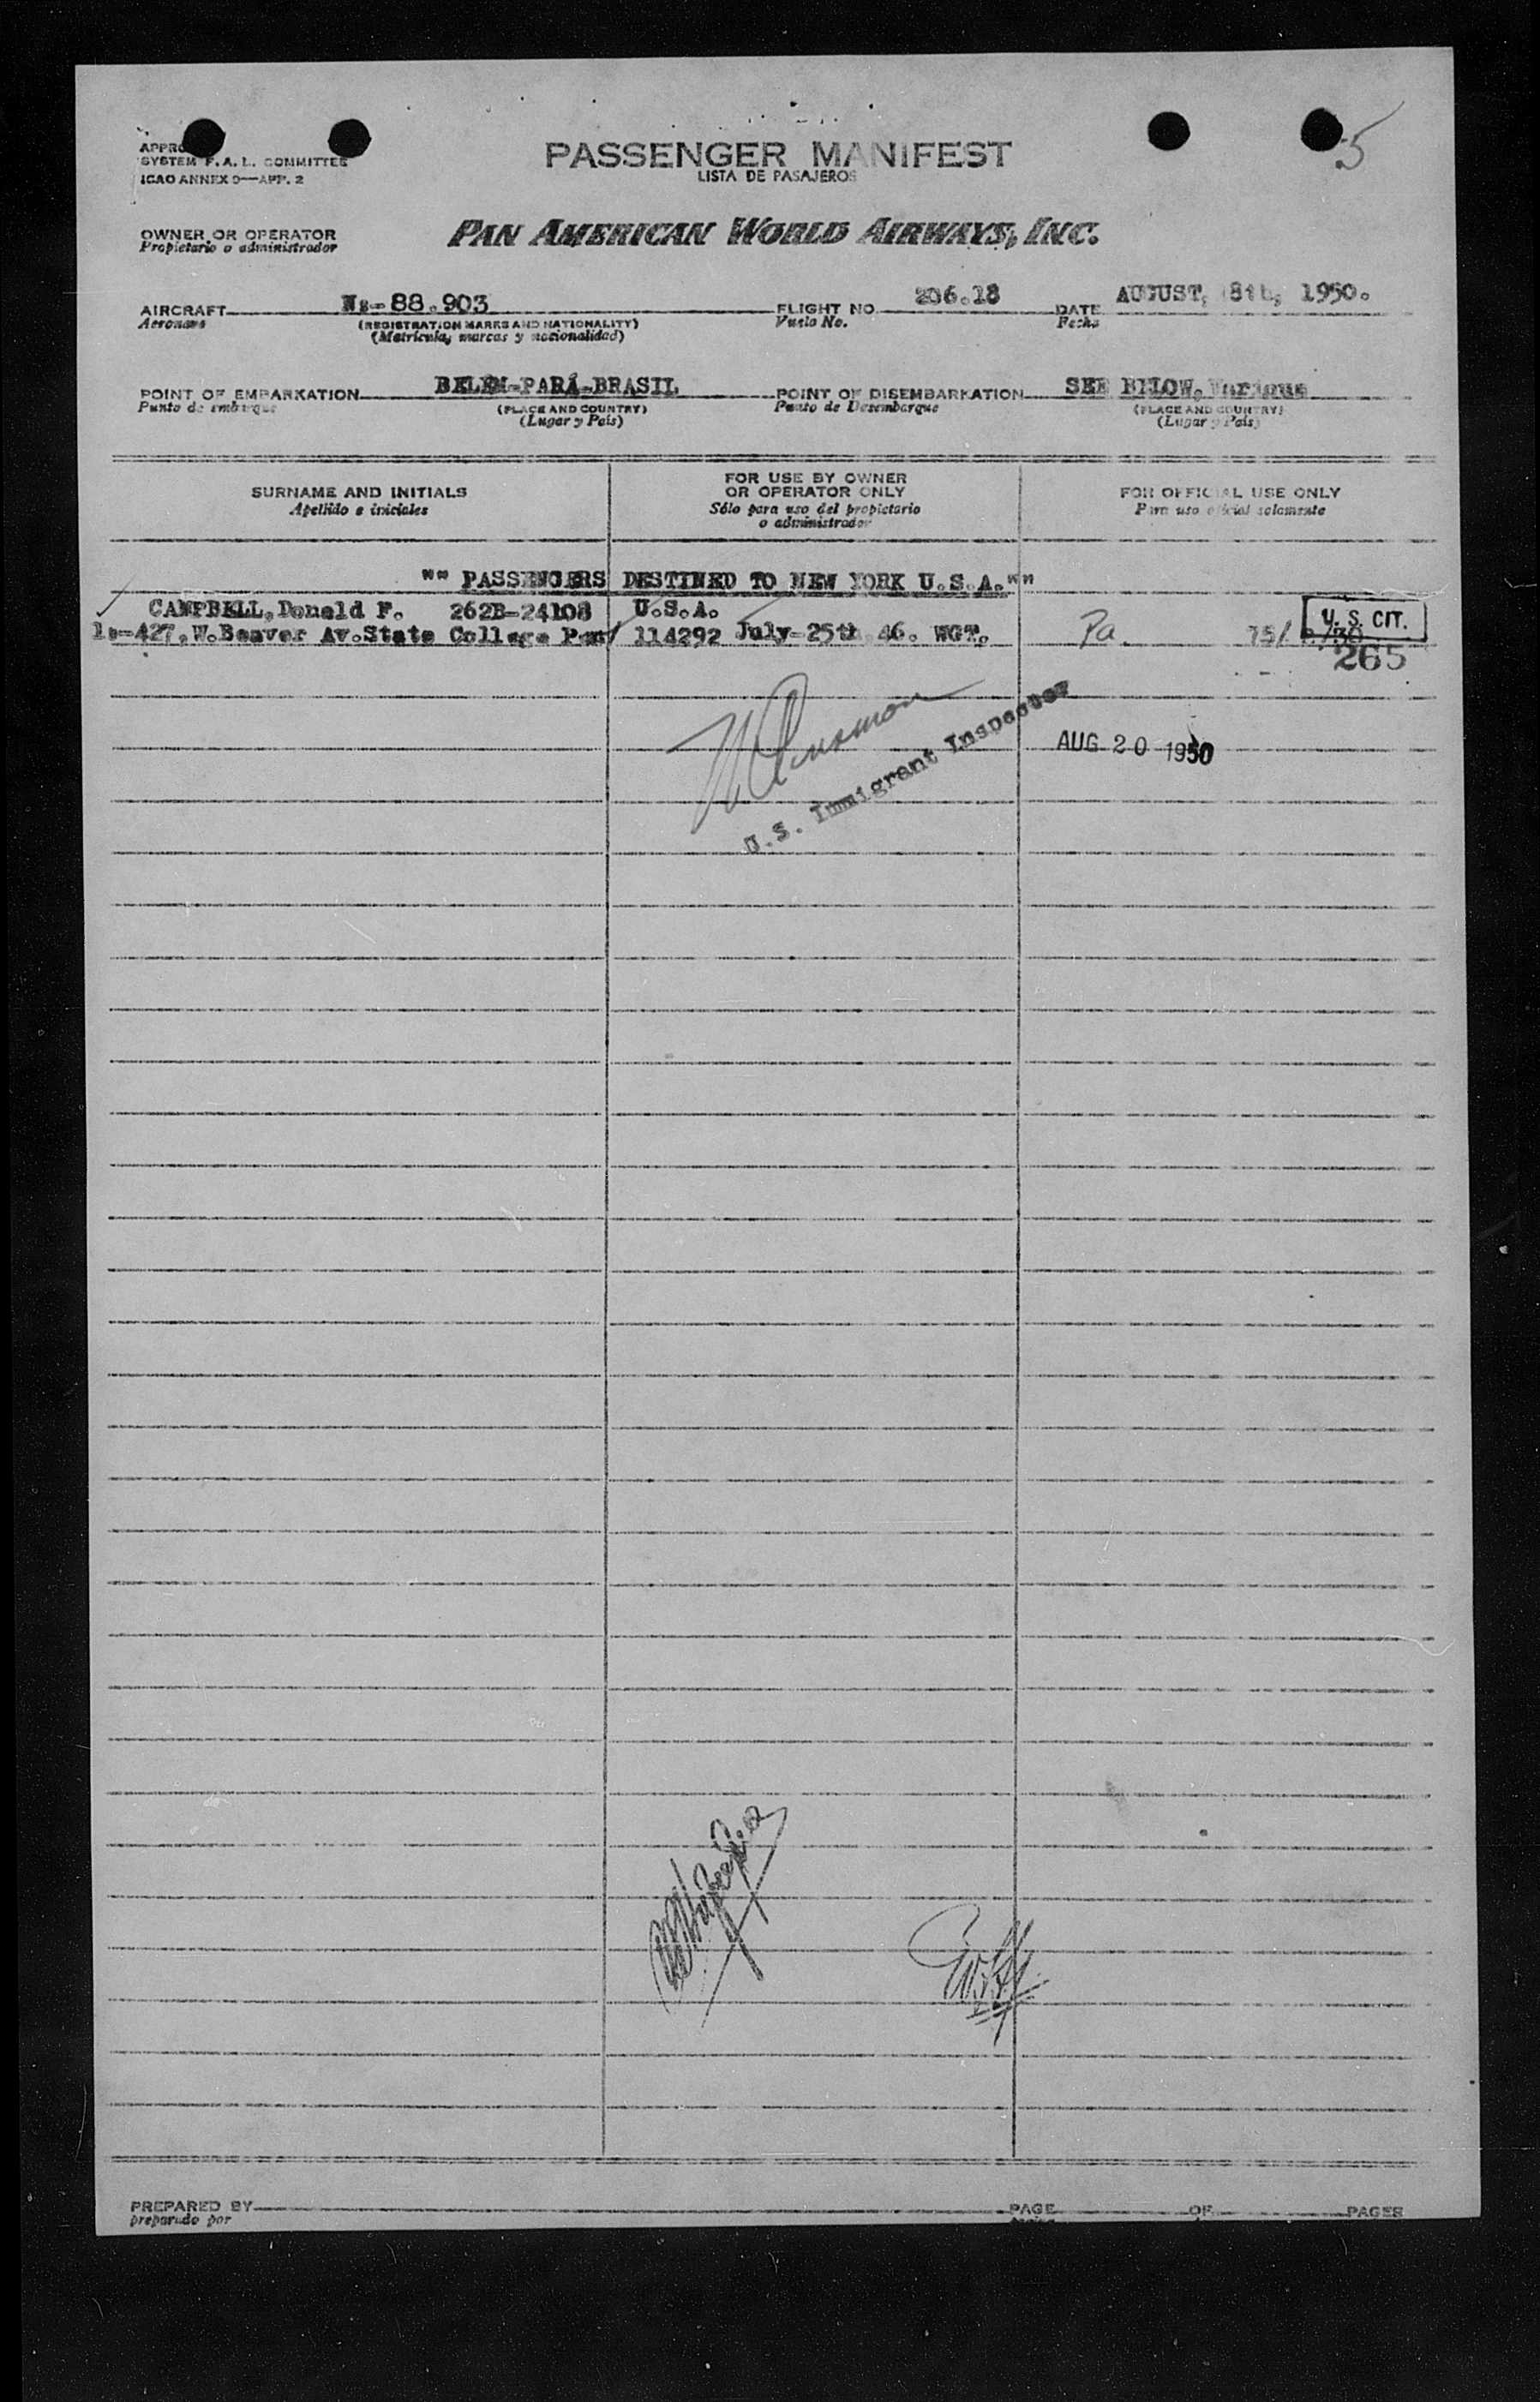 5
SYSTEM F. A. L. COMMITTEE
ICAO ANNEX 9—APP. 2
PASSENGER MANIFEST
LISTA DE PASAJEROS
OWNER OR OPERATOR
Propietario o administrador
PAN AMERICAN WORLD AIRWAYS, INC.
AIRCRAFT Ns-88.903 FLIGHT NO. 206.18 DATE AUGUST, 8th, 1950.
Aeronave (REGISTRATION MARKS AND NATIONALITY) Vuelo No. Fecha
(Matrícula, marcas y nacionalidad)
POINT OF EMBARKATION BELÉM-PARÁ-BRASIL POINT OF DISEMBARKATION SEE BELOW,
Punto de embarque (PLACE AND COUNTRY) Punto de Desembarque (PLACE AND COUNTRY)
(Lugar y País) (Lugar y País)
SURNAME AND INITIALS
Apellido e iniciales
FOR USE BY OWNER
OR OPERATOR ONLY
Sólo para uso del propietario
o administrador
FOR OFFICIAL USE ONLY
Para uso oficial solamente
"" PASSENGERS DESTINED TO NEW YORK U.S.A.""
CAMPBELL,Donald F. 262B-24108 U.S.A. U. S. CIT.
427,W.Beaver Av.State College 114292 July-25th 46. WGT. Pa.
265
U.S. Immigrant Inspector
AUG 20 1950
PREPARED BY PAGE OF PAGES
preparado por